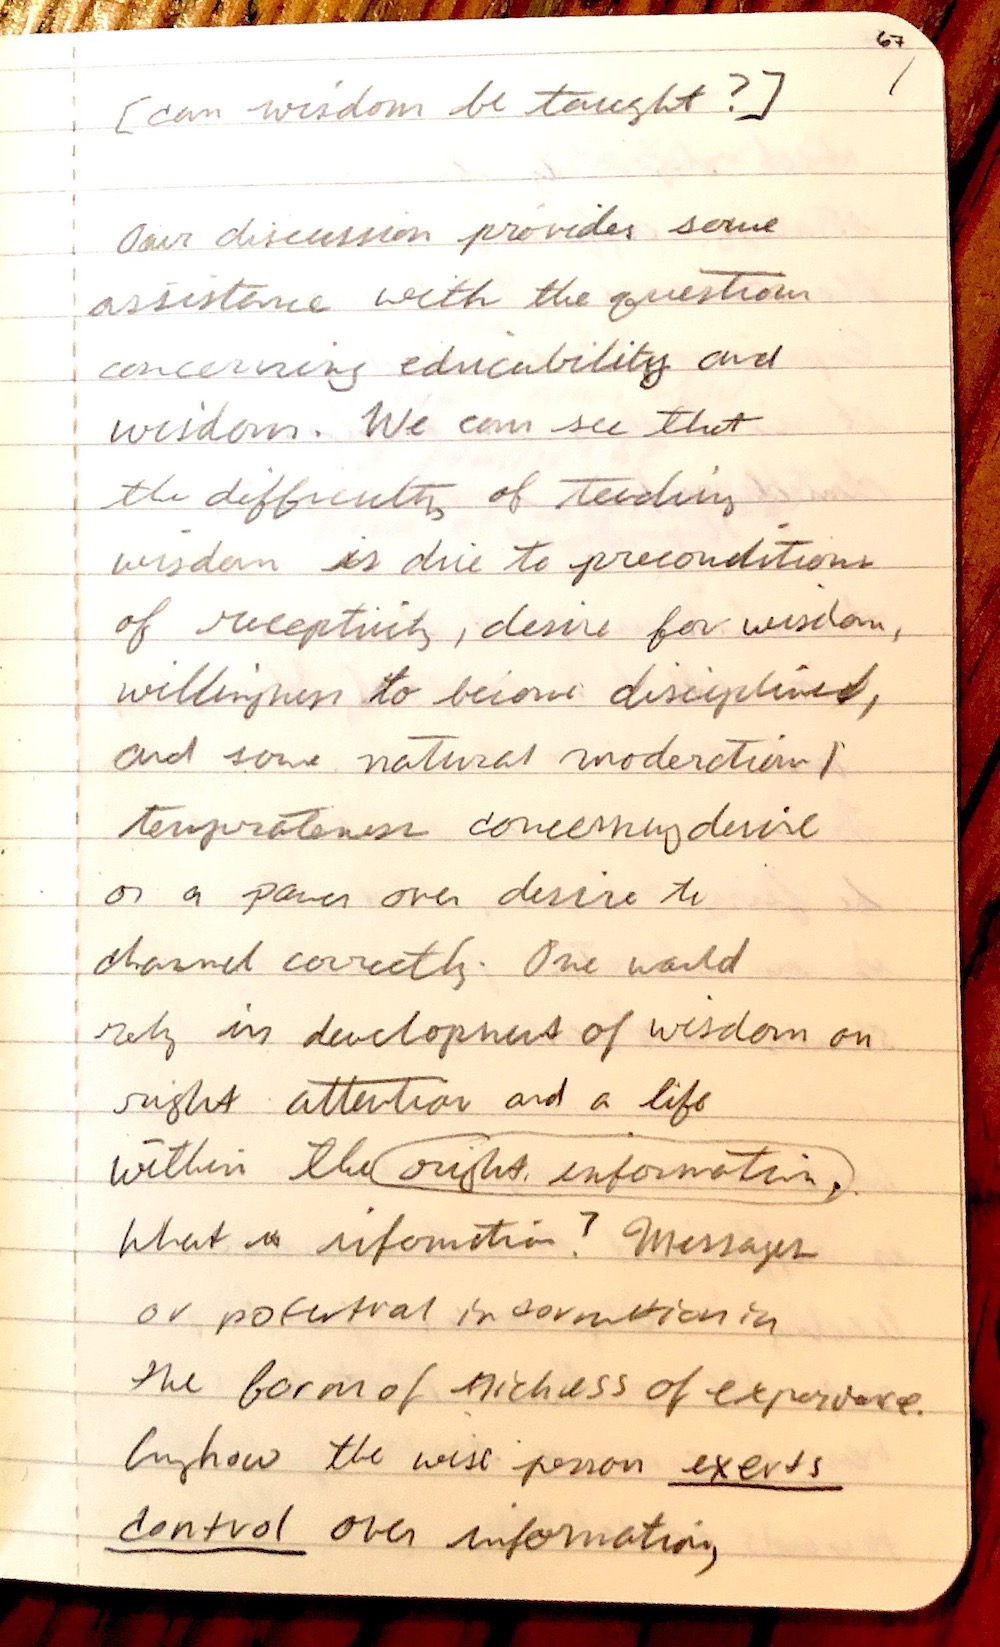 67
[can wisdom be taught?]
Our discussion provides some
assistance with the question
concerning educability and
wisdom. We can see that
the difficulty of teaching
wisdom is due to preconditions
of receptivity, desire for wisdom,
willingness to become disciplined,
and some natural moderation/
temperateness concerning desire
or a power over desire to
channel correctly. One would
rely in development of wisdom on
right attention and a life
within the right information.
What is information? Messages
or potential information in
the form of richness of experience.
Anyhow the wise person exerts
control over information,